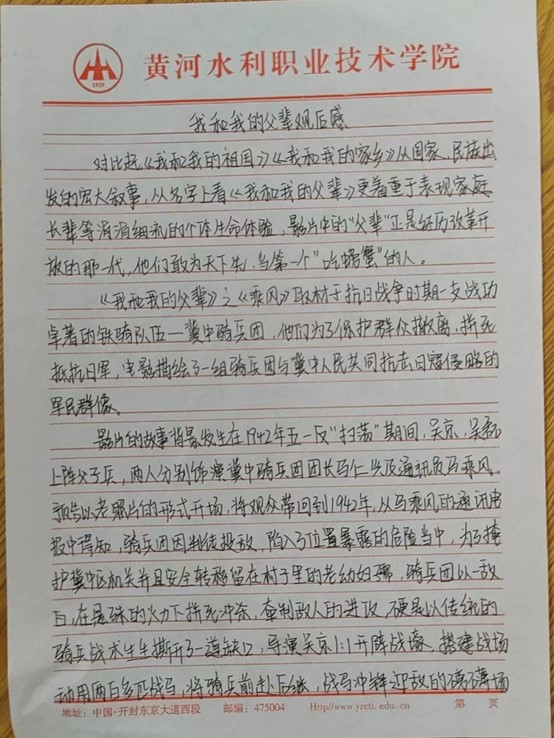 1929
黄河水利职业技术学院
我和我的父辈观后感
对比起《我和我的祖国》《我和我的家乡》从国家、民族出
发的宏大叙事，从名字上看《我和我的父辈》更着重于表现家庭
长辈等涓涓细流的个体生命体验，影片中的“父辈”正是经历改革开
放的那一代，他们敢为天下先，当第一个“吃螃蟹”的人。
《我和我的父辈》之《乘风》取材于抗日战争时期一支战功
卓著的铁骑队伍—冀中骑兵团，他们为了保护群众撤离，拼死
抵抗日军，电影描绘了一组骑兵团与冀中人民共同抗击日寇侵略的
军民群像。
影片的故事背景发生在1942年五一反“扫荡”期间，吴京，吴磊
上阵父子兵，两人分别饰演冀中骑兵团团长马仁兴及通讯员马乘风。
预告以老照片的形式开场，将观众带回到1942年，从马乘风的通讯电
报中得知，骑兵团因叛徒投敌，陷入了位置暴露的危险当中，为了掩
护冀中区机关并且安全转移留在村子里的老幼妇孺，骑兵团以一敌
百，在悬殊的火力下拼死冲杀，牵制敌人的进攻，硬是以传统的
骑兵战术生生撕开了一道缺口，导演吴京1:1开阵战壕、搭建战场
动用两百多匹战马，将骑兵前赴后继，战马冲锋迎敌的磅礴场
地址：中国·开封东京大道西段 邮编：475004 Http//www.yrcti.edu.cn 第 页